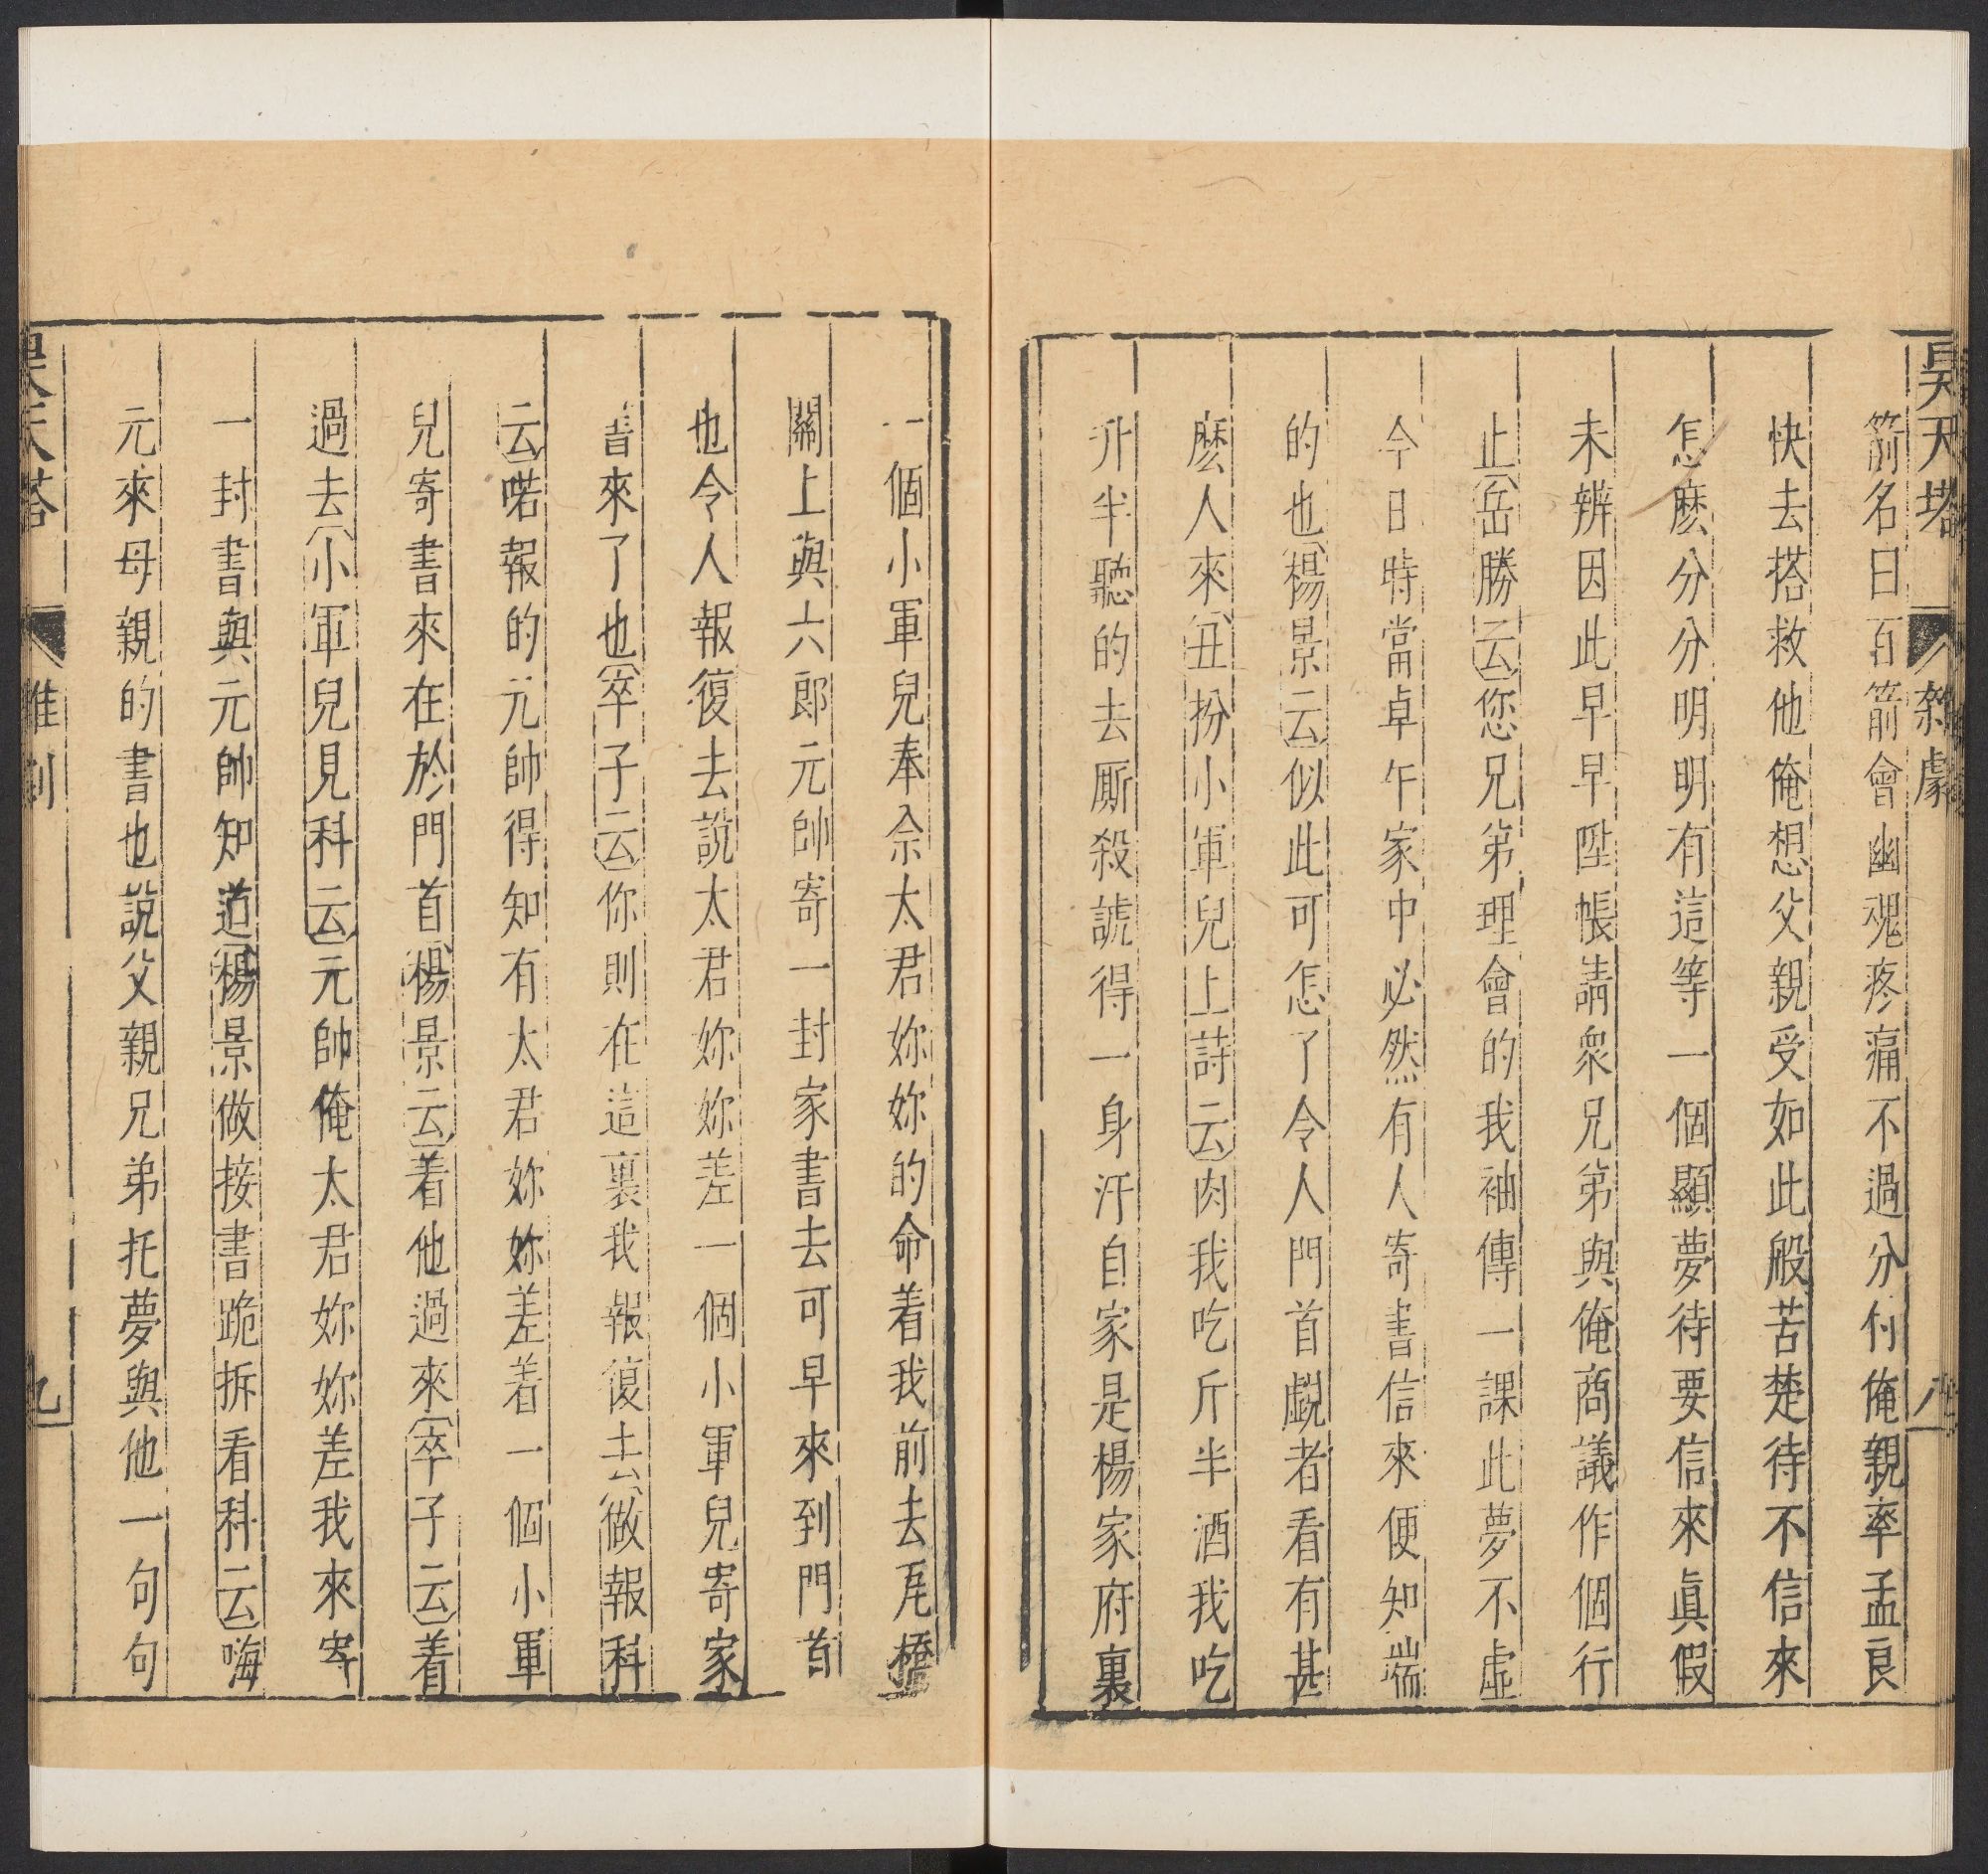 昊天塔 雜劇 八
箭名曰百箭會幽魂疼痛不過分付俺親率孟良
快去搭救他俺想父親受如此般苦楚待不信來
怎麽分分明明有這等一個顯夢待要信來眞假
未辨因此早早陞帳請衆兄弟與俺商議作個行
止岳勝云您兄弟理會的我袖傳一課此夢不虛
今日時當卓午家中必然有人寄書信來便知端
的也楊景云似此可怎了令人門首覷者看有甚
麽人來丑扮小軍兒上詩云肉我吃斤半酒我吃
升半聽的去厮殺諕得一身汗自家是楊家府裏
一個小軍兒奉佘太君妳妳的命着我前去瓦橋
關上與六郎元帥寄一封家書去可早來到門首
也令人報復去說太君妳妳差一個小軍兒寄家
書來了也卒子云你則在這裏我報復去做報科
云喏報的元帥得知有太君妳妳差着一個小軍
兒寄書來在於門首楊景云着他過來卒子云着
過去小軍兒見科云元帥俺太君妳妳差我來寄
一封書與元帥知道楊景做接書跪拆看科云嗨
元來母親的書也說父親兄弟托夢與他一句句
昊天塔 雜劇 九